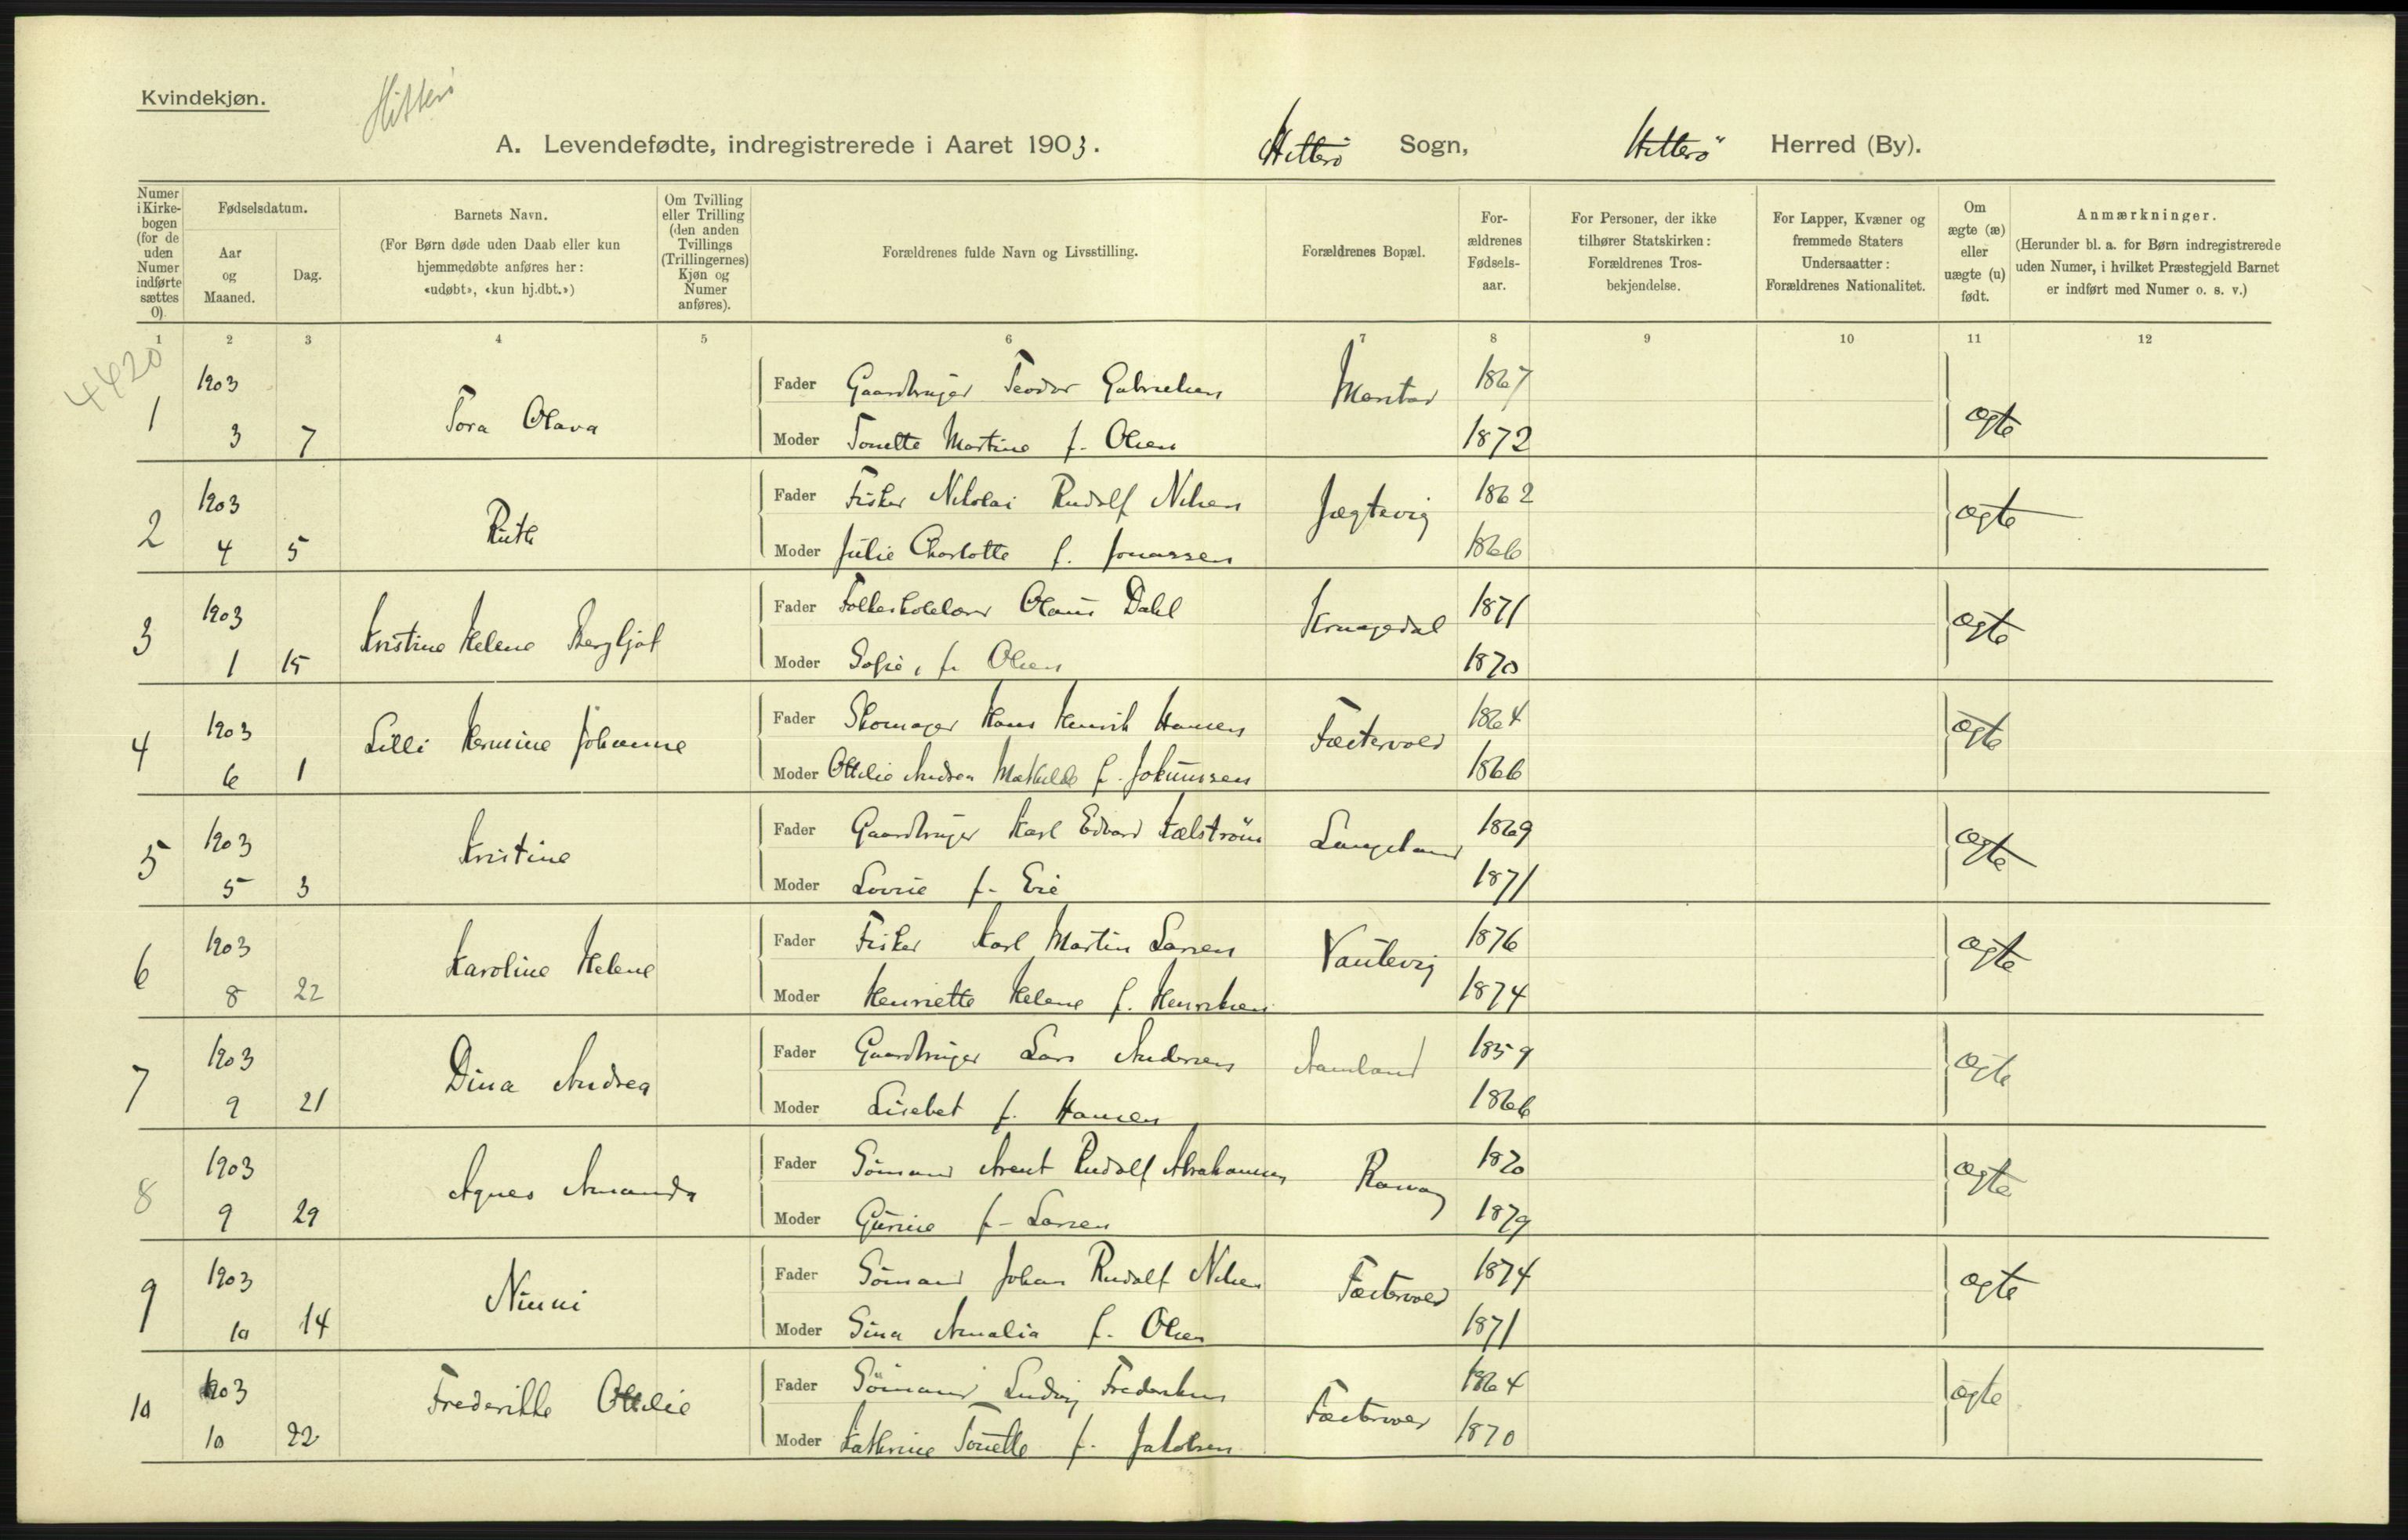 Kvindekjøn.
Hitterö
A. Levendefødte, indregistrerede i Aaret 1903. Hitterö Sogn, Hitterö Herred (By).
Numer i Kirkebogen (for de uden Numer indførte sættes 0).
Fødselsdatum.
Aar og Maaned.
Dag.
Barnets Navn.
(For Børn døde uden Daab eller kun hjemmedøbte anføres her: «udøbt», «kun hj.dbt.»)
Om Tvilling eller Trilling (den anden Tvillings (Trillingernes) Kjøn og Numer anføres).
Forældrenes fulde Navn og Livsstilling.
Forældrenes Bopæl.
Forældrenes Fødselsaar.
For Personer, der ikke tilhører Statskirken: Forældrenes Trosbekjendelse.
For Lapper, Kvæner og fremmede Staters Undersaatter: Forældrenes Nationalitet.
Om ægte (æ) eller uægte (u) født.
Anmærkninger.
(Herunder bl. a. for Børn indregistrerede uden Numer, i hvilket Præstegjeld Barnet er indført med Numer o. s. v.)
1 2 3 4 5 6 7 8 9 10 11 12
4420
1 1903 3 7 Tora Olava
Fader Gaardbruger Teodor Gabrielsen 1867 ægte
Moder Tonette Martine f. Olsen 1872
2 1903 4 5 Ruth
Fader Fisker Nikolai Rudolf Nilsen Jægtevig 1862 ægte
Moder Julie Charlotte f. Jonassen 1866
3 1903 1 15 Kristine Helene Bergljot
Fader Folkeskolelærer Olaus Dahl 1871 ægte
Moder Sofie, f. Olsen 1870
4 1903 6 1 Lilli Hermine Johanne
Fader Skomager Hans Henrik Hansen 1864 ægte
Moder Ottilie Andrea Mathilde f. 1866
5 1903 5 3 Kristine
Fader Gaardbruger Karl Edvard Kælström Langeland 1869 ægte
Moder Lovise f. Eie 1871
6 1903 8 22 Karoline Helene
Fader Fisker Karl Martin Larsen 1876 ægte
Moder Henriette Helene f. Henriksen 1874
7 1903 9 21 Dina Andrea
Fader Gaardbruger Lars Andersen Aamland 1859 ægte
Moder Lisebet f. Hansen 1866
8 1903 9 29 Agnes Amanda
Fader Sömand Arent Rudolf Abrahamsen 1870 ægte
Moder Gurine f. Larsen 1879
9 1903 10 14 Ninni
Fader Sömand Johan Rudolf Nilsen 1874 ægte
Moder Sina Amalia f. Olsen 1871
10 1903 10 22 Frederikke Ottilie
Fader Sömand Ludvig Frederiksen 1864 ægte
Moder Kathrine Tonette f. Jakobsen 1870